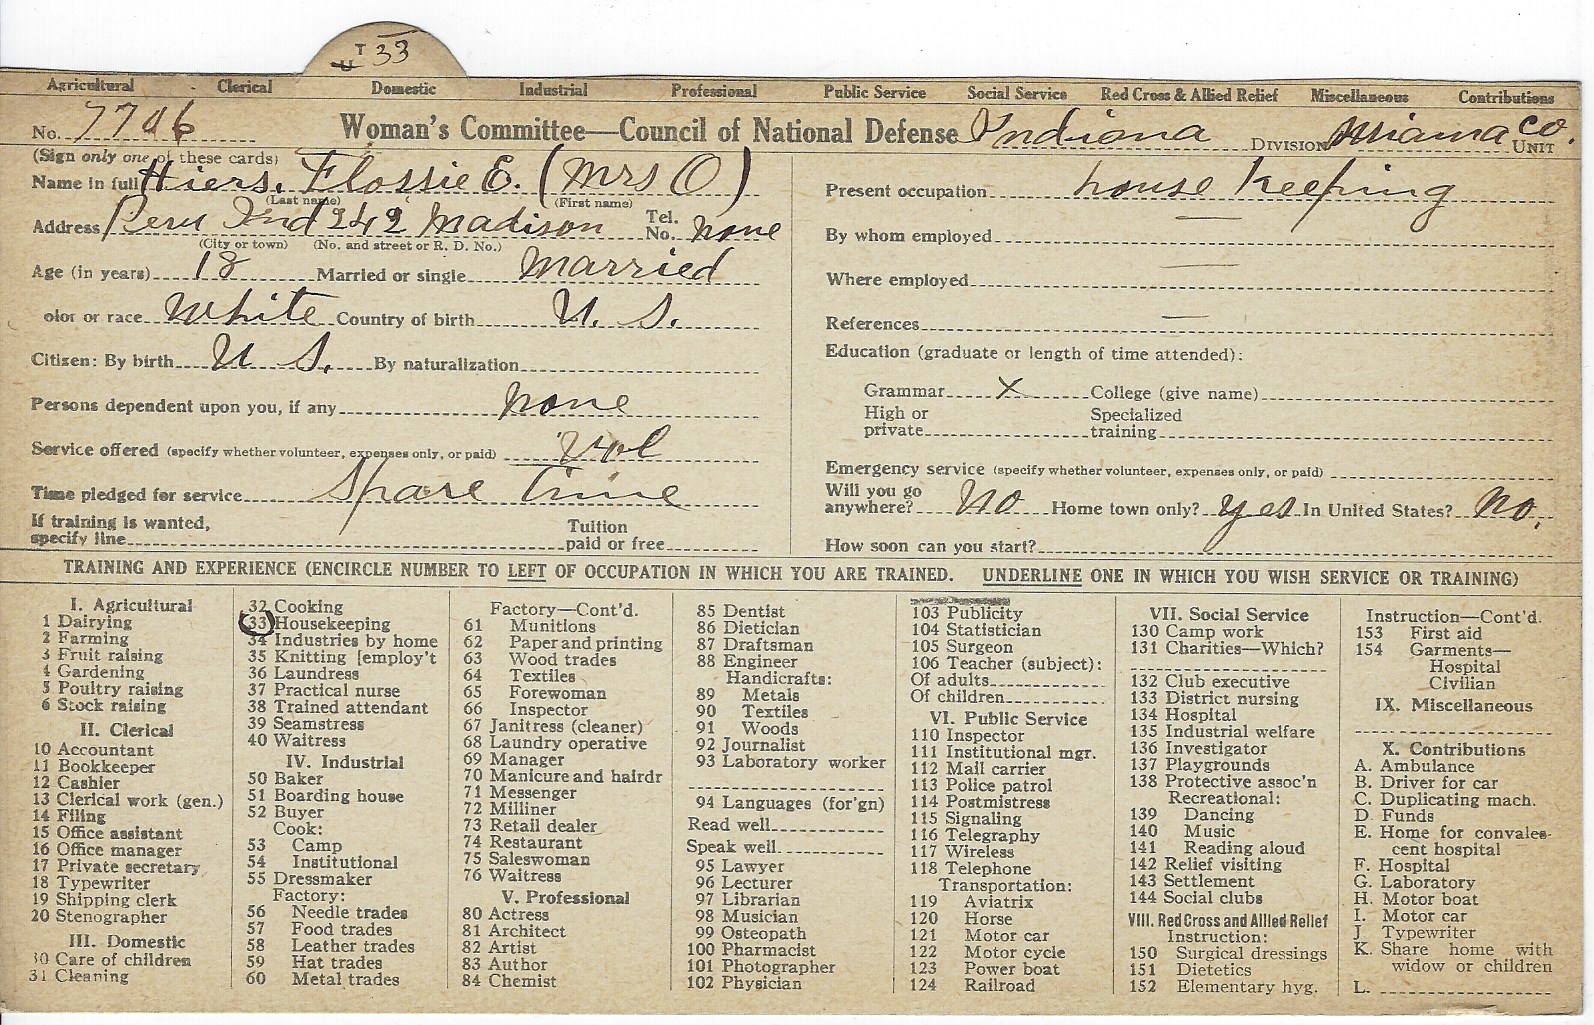 T
U 33
Agricultural Clerical Domestic Industrial Professional Public Service Social Service Red Cross & Allied Relief Miscellaneous Contributions
No. 7746 Woman's Committee—Council of National Defense Indiana DIVISION Miama Co. UNIT
(Sign only one of these cards)
Name in full Hiers, Flossie E. (Mrs O)
(Last name) (First name)
Address Peru Ind 242 Madison Tel. No. none
(City or town) (No. and street or R. D. No.)
Age (in years) 18 Married or single Married
olor or race White Country of birth U. S.
Citizen: By birth U S. By naturalization
Persons dependent upon you, if any none
Service offered (specify whether volunteer, expenses only, or paid) Vol
Time pledged for service Spare Time
If training is wanted, specify line Tuition paid or free
Present occupation house keeping
By whom employed —
Where employed —
References —
Education (graduate or length of time attended):
Grammar x College (give name)
High or private Specialized training
Emergency service (specify whether volunteer, expenses only, or paid)
Will you go anywhere? No Home town only? yes In United States? No.
How soon can you start?
TRAINING AND EXPERIENCE (ENCIRCLE NUMBER TO LEFT OF OCCUPATION IN WHICH YOU ARE TRAINED. UNDERLINE ONE IN WHICH YOU WISH SERVICE OR TRAINING)
I. Agricultural
1 Dairying
2 Farming
3 Fruit raising
4 Gardening
5 Poultry raising
6 Stock raising
II. Clerical
10 Accountant
11 Bookkeeper
12 Cashier
13 Clerical work (gen.)
14 Filing
15 Office assistant
16 Office manager
17 Private secretary
18 Typewriter
19 Shipping clerk
20 Stenographer
III. Domestic
30 Care of children
31 Cleaning
32 Cooking
33 Housekeeping
34 Industries by home
35 Knitting [employ't
36 Laundress
37 Practical nurse
38 Trained attendant
39 Seamstress
40 Waitress
IV. Industrial
50 Baker
51 Boarding house
52 Buyer
Cook:
53 Camp
54 Institutional
55 Dressmaker
Factory:
56 Needle trades
57 Food trades
58 Leather trades
59 Hat trades
60 Metal trades
Factory—Cont'd.
61 Munitions
62 Paper and printing
63 Wood trades
64 Textiles
65 Forewoman
66 Inspector
67 Janitress (cleaner)
68 Laundry operative
69 Manager
70 Manicure and hairdr
71 Messenger
72 Milliner
73 Retail dealer
74 Restaurant
75 Saleswoman
76 Waitress
V. Professional
80 Actress
81 Architect
82 Artist
83 Author
84 Chemist
85 Dentist
86 Dietician
87 Draftsman
88 Engineer
Handicrafts:
89 Metals
90 Textiles
91 Woods
92 Journalist
93 Laboratory worker
94 Languages (for'gn)
Read well
Speak well
95 Lawyer
96 Lecturer
97 Librarian
98 Musician
99 Osteopath
100 Pharmacist
101 Photographer
102 Physician
103 Publicity
104 Statistician
105 Surgeon
106 Teacher (subject):
Of adults
Of children
VI. Public Service
110 Inspector
111 Institutional mgr.
112 Mail carrier
113 Police patrol
114 Postmistress
115 Signaling
116 Telegraphy
117 Wireless
118 Telephone
Transportation:
119 Aviatrix
120 Horse
121 Motor car
122 Motor cycle
123 Power boat
124 Railroad
VII. Social Service
130 Camp work
131 Charities—Which?
132 Club executive
133 District nursing
134 Hospital
135 Industrial welfare
136 Investigator
137 Playgrounds
138 Protective assoc'n
Recreational:
139 Dancing
140 Music
141 Reading aloud
142 Relief visiting
143 Settlement
144 Social clubs
VIII. Red Cross and Allied Relief
Instruction:
150 Surgical dressings
151 Dietetics
152 Elementary hyg.
Instruction—Cont'd.
153 First aid
154 Garments—
Hospital
Civilian
IX. Miscellaneous
X. Contributions
A. Ambulance
B. Driver for car
C. Duplicating mach.
D. Funds
E. Home for convales-
cent hospital
F. Hospital
G. Laboratory
H. Motor boat
I. Motor car
J Typewriter
K. Share home with
widow or children
L.